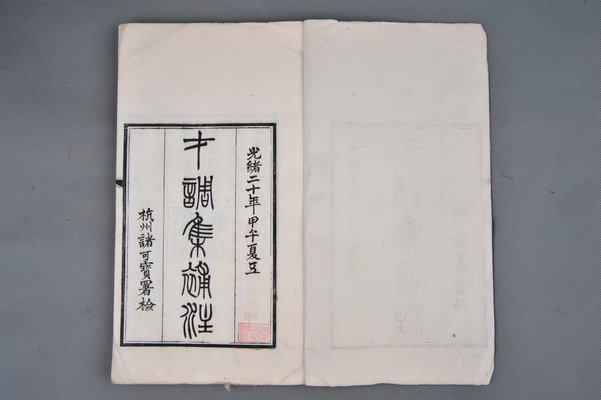 光緒二十年甲午夏五
才調集補注
杭州諸可寶署檢